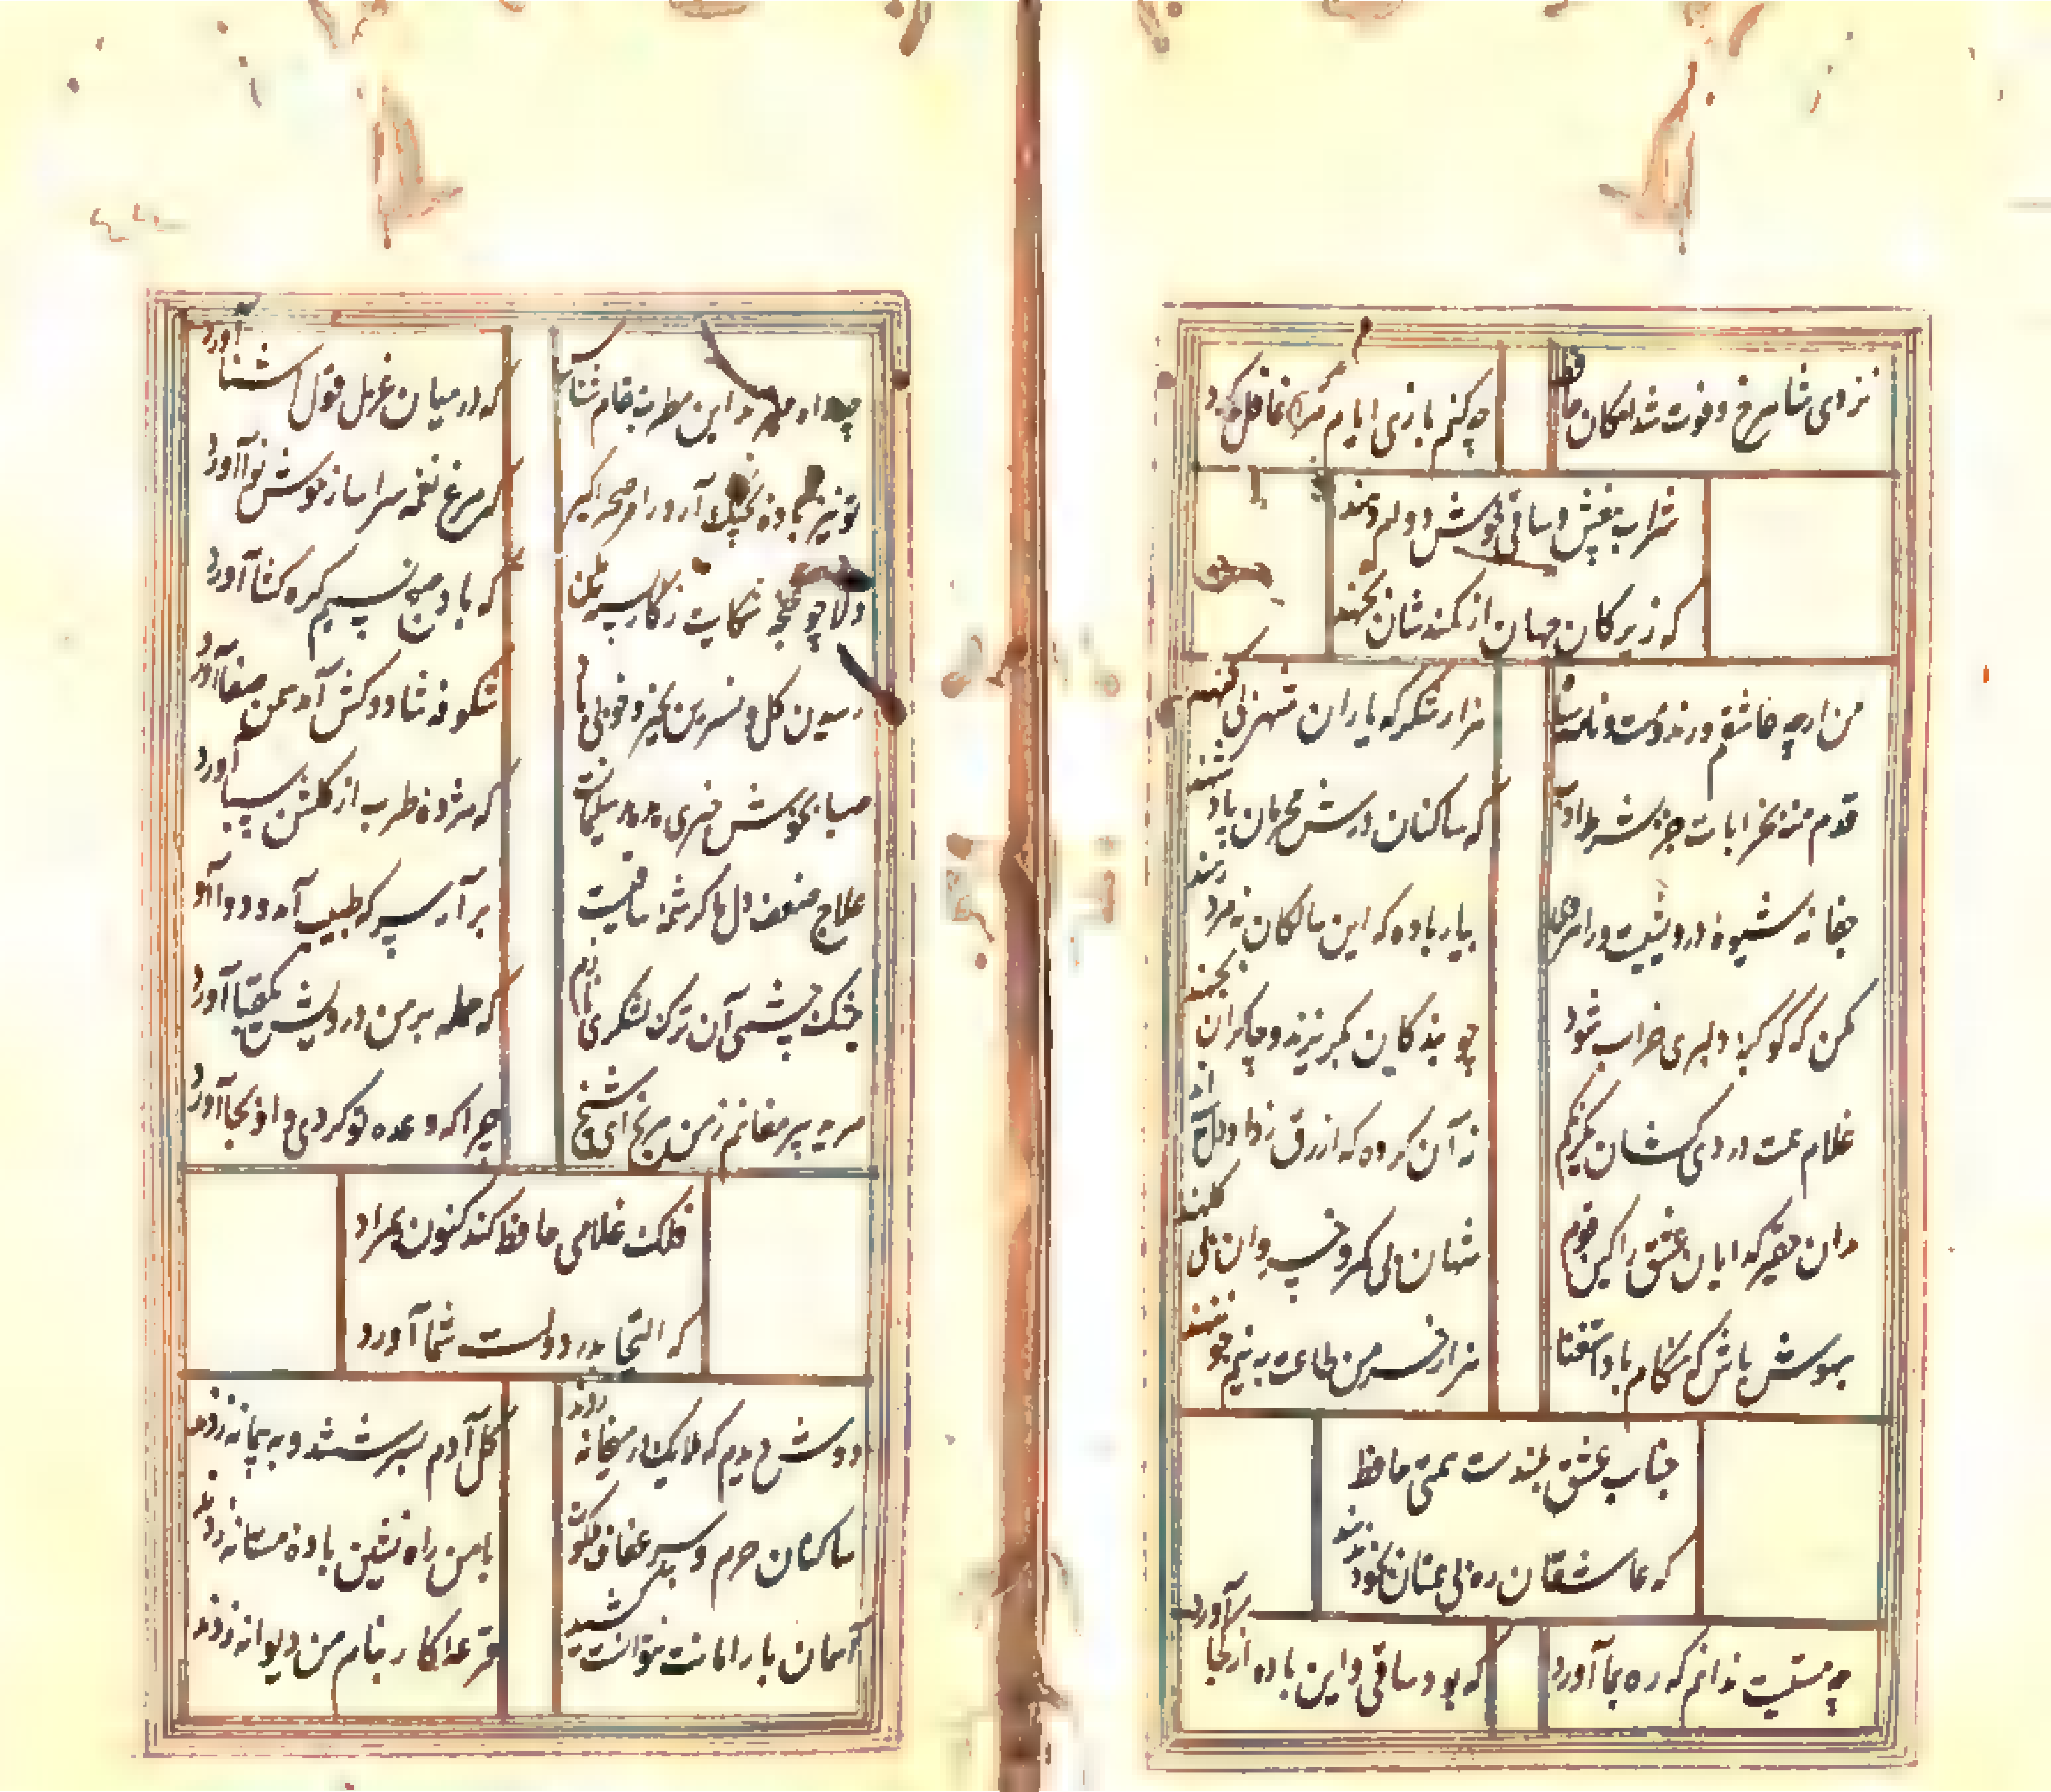 نزدی شاه رخ و فوت شد امکان حافظ
چه کنم بازی ایام مرا غافل کرد
شراب بیغش و ساقی خوش دو دام رهند
که زیرکان جهان از کمندشان نجهند
من ارچه عاشقم و رند و مست و نامه سیاه
هزار شکر که یاران شهر بی گنهند
قدم منه بخرابات جز بشرط ادب
که ساکنان درش محرمان پادشهند
جفا نه شیوه درویشیست و راه روی
بیار باده که این سالکان نه مرد رهند
مکن که کوکبه دلبری خراب شود
چو بندگان بگریزند و چاکران بجهند
غلام همت دردی کشان یکرنگم
نه آن گروه که ازرق ردا و دل سیهند
مدان حقیر کدایان عشق را کین قوم
شهان بی کمر و خسروان بی کلهند
بهوش باش که هنگام باد استغنا
هزار خرمن طاعت به نیم جو ننهند
جناب عشق بلندست همتی حافظ
که عاشقان ره بی همتان بخود ندهند
چه مستیست ندانم که ره بما آورد
که بود ساقی و این باده از کجا آورد
چه راه میزند این مطرب مقام شناس
که در میان غزل قول آشنا آورد
تو نیز باده بچنک آر و راه صحرا کیر
که مرغ نغمه سرا ساز خوش نوا آورد
دلا چو غنچه شکایت ز کار بسته مکن
که باد صبح نسیم کره کشا آورد
رسیدن کل و نسرین بخیر و خوبی باد
بنفشه شاد و کش آمد سمن صفا آورد
صبا بخوش خبری هدهد سلیمانست
که مژده طرب از گلشن سبا آورد
علاج ضعف دل ما کرشمه ساقیست
برآر سر که طبیب آمد و دوا آورد
بتنک چشمی آن ترک لشکری نازم
که حمله بر من درویش یکقبا آورد
مرید پیر مغانم ز من مرنج ای شیخ
چرا که وعده تو کردی و او بجا آورد
فلک غلامی حافظ کند کنون بمراد
که التجا بدر دولت شما آورد
دوش دیدم که ملایک در میخانه زدند
گل آدم بسرشتند و به پیمانه زدند
ساکنان حرم و ستر عفاف ملکوت
با من راه نشین باده مستانه زدند
آسمان بار امانت نتوانست کشید
قرعه کار بنام من دیوانه زدند